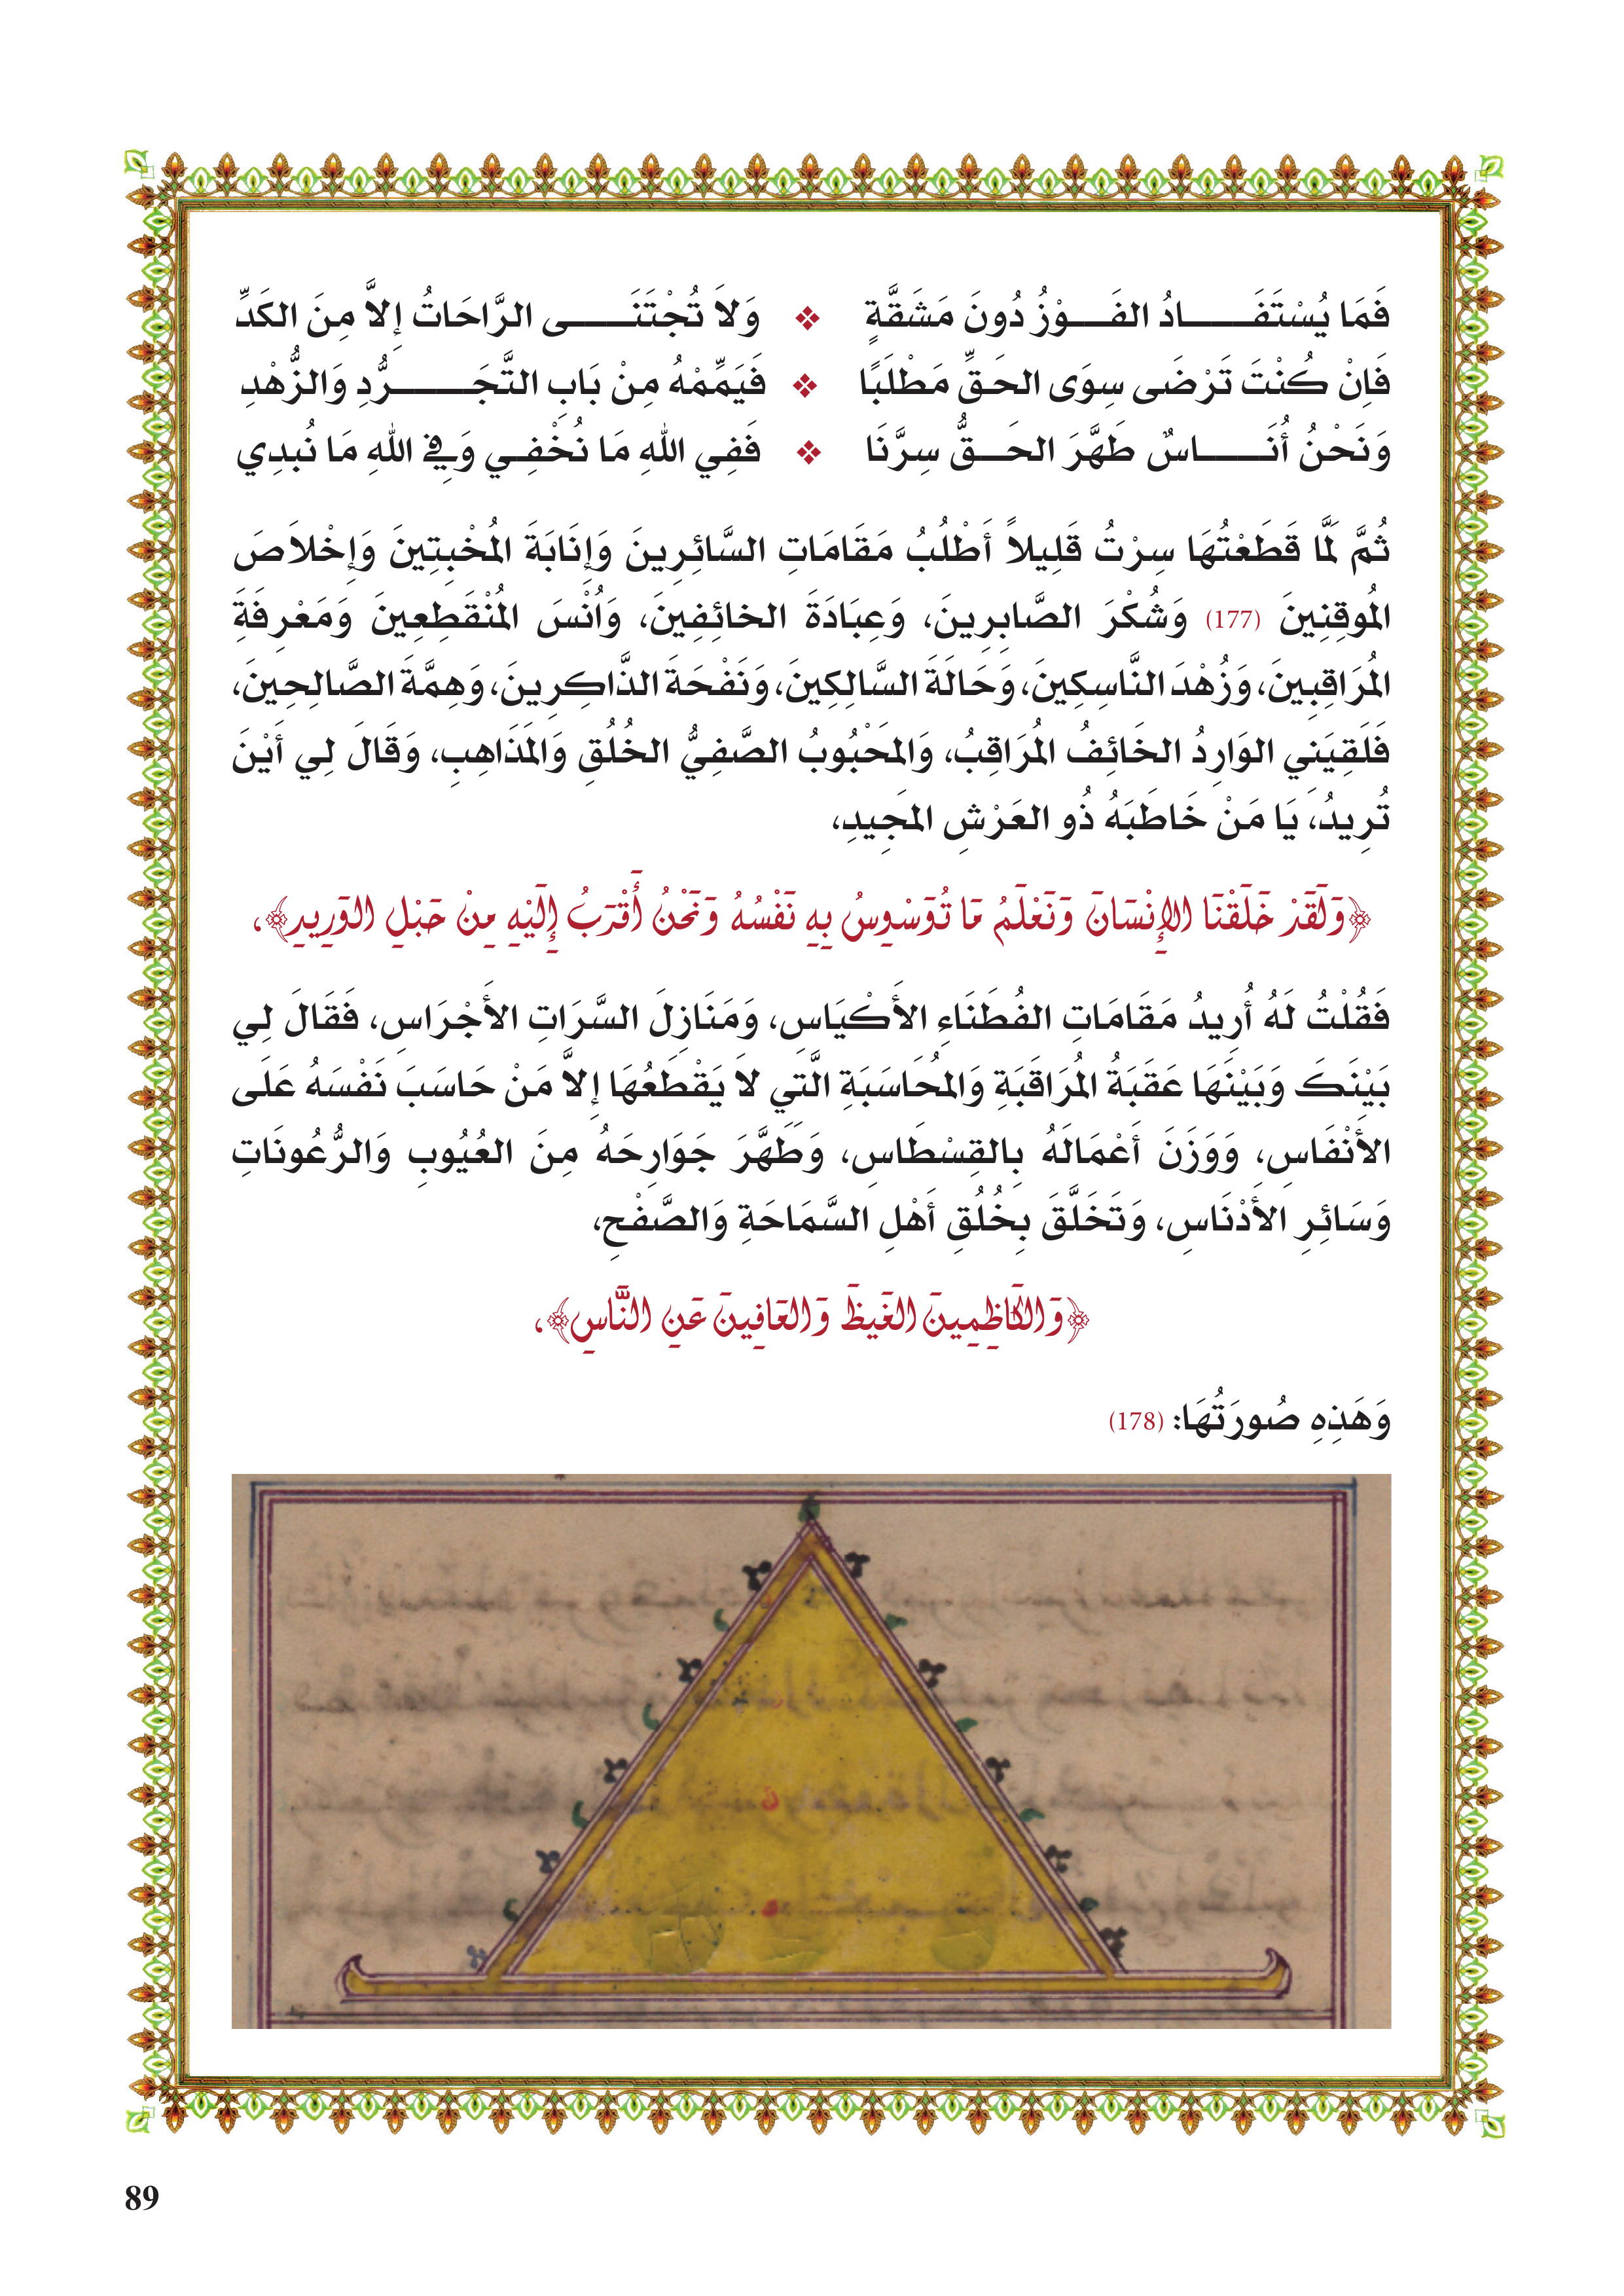 فَمَا يُسْتَفَادُ الفَوْزُ دُونَ مَشَقَّةٍ ❖ وَلاَ تُجْتَنَى الرَّاحَاتُ إِلاَّ مِنَ الكَدِّ
فَإِنْ كُنْتَ تَرْضَى سِوَى الحَقِّ مَطْلَبًا ❖ فَيَمِّمْهُ مِنْ بَابِ التَّجَرُّدِ وَالزُّهْدِ
وَنَحْنُ أُنَاسٌ طَهَّرَ الحَقُّ سِرَّنَا ❖ فَفِي اللهِ مَا نُخْفِي وَفِي اللهِ مَا نُبدِي
ثُمَّ لَمَّا قَطَعْتُهَا سِرْتُ قَلِيلاً أَطْلُبُ مَقَامَاتِ السَّائِرِينَ وَإِنَابَةَ المُخْبِتِينَ وَإِخْلاَصَ
المُوقِنِينَ (177) وَشُكْرَ الصَّابِرِينَ، وَعِبَادَةَ الخائِفِينَ، وَأُنْسَ المُنْقَطِعِينَ وَمَعْرِفَةَ
المُرَاقِبِينَ، وَزُهْدَ النَّاسِكِينَ، وَحَالَةَ السَّالِكِينَ، وَنَفْحَةَ الذَّاكِرِينَ، وَهِمَّةَ الصَّالِحِينَ،
فَلَقِيَنِي الوَارِدُ الخَائِفُ المُرَاقِبُ، وَالمَحْبُوبُ الصَّفِيُّ الخُلُقِ وَالمَذَاهِبِ، وَقَالَ لِي أَيْنَ
تُرِيدُ، يَا مَنْ خَاطَبَهُ ذُو العَرْشِ المَجِيدِ،
﴿وَلَقَدْ خَلَقْنَا الإِنْسَانَ وَنَعْلَمُ مَا تُوَسْوِسُ بِهِ نَفْسُهُ وَنَحْنُ أَقْرَبُ إِلَيْهِ مِنْ حَبْلِ الوَرِيدِ﴾،
فَقُلْتُ لَهُ أُرِيدُ مَقَامَاتِ الفُطَنَاءِ الأَكْيَاسِ، وَمَنَازِلَ السَّرَاتِ الأَجْرَاسِ، فَقَالَ لِي
بَيْنَكَ وَبَيْنَهَا عَقَبَةُ المُرَاقَبَةِ وَالمُحَاسَبَةِ الَّتِي لاَ يَقْطَعُهَا إِلاَّ مَنْ حَاسَبَ نَفْسَهُ عَلَى
الأَنْفَاسِ، وَوَزَنَ أَعْمَالَهُ بِالقِسْطَاسِ، وَطَهَّرَ جَوَارِحَهُ مِنَ العُيُوبِ وَالرُّعُونَاتِ
وَسَائِرِ الأَدْنَاسِ، وَتَخَلَّقَ بِخُلُقِ أَهْلِ السَّمَاحَةِ وَالصَّفْحِ،
﴿وَالكَاظِمِينَ الغَيظَ وَالعَافِينَ عَنِ النَّاسِ﴾،
وَهَذِهِ صُورَتُهَا: (178)
89